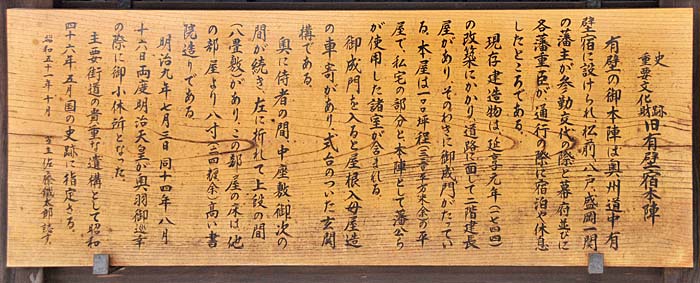 史跡
重要文化財
旧有壁宿本陣
有壁の御本陣は奥州道中有
壁宿に設けられ松前、八戸、盛岡一関
の藩主が参勤交代の際と幕府並びに
各藩重臣が通行の際に宿泊や休息
したところである。
現存建造物は延享元年(一七四四)
の改築にかかり道路に面して二階建長
屋があり、そのわきに御成門がたってい
る。本屋は一一〇坪程の平
屋で、私宅の部分と本陣として藩公ら
が使用した諸室が含まれる。
御成門を入ると屋根入母屋造
の車寄があり、式台のついた玄関
構である。
奥に侍者の間、中座敷、御次の
間が続き、左に折れて上段の間
(八畳敷)があり、この部屋の床は他
の部屋より八寸(二四糎余)高い書
院造りである。
明治九年七月三日同十四年八月
十六日両度明治天皇が奥羽御巡幸
の際に御小休所となった。
主要街道の貴重な遺構として昭和
四十六年五月国の史跡に指定さる。
昭和五十一年十月
佐藤鐵太郎 誌す。